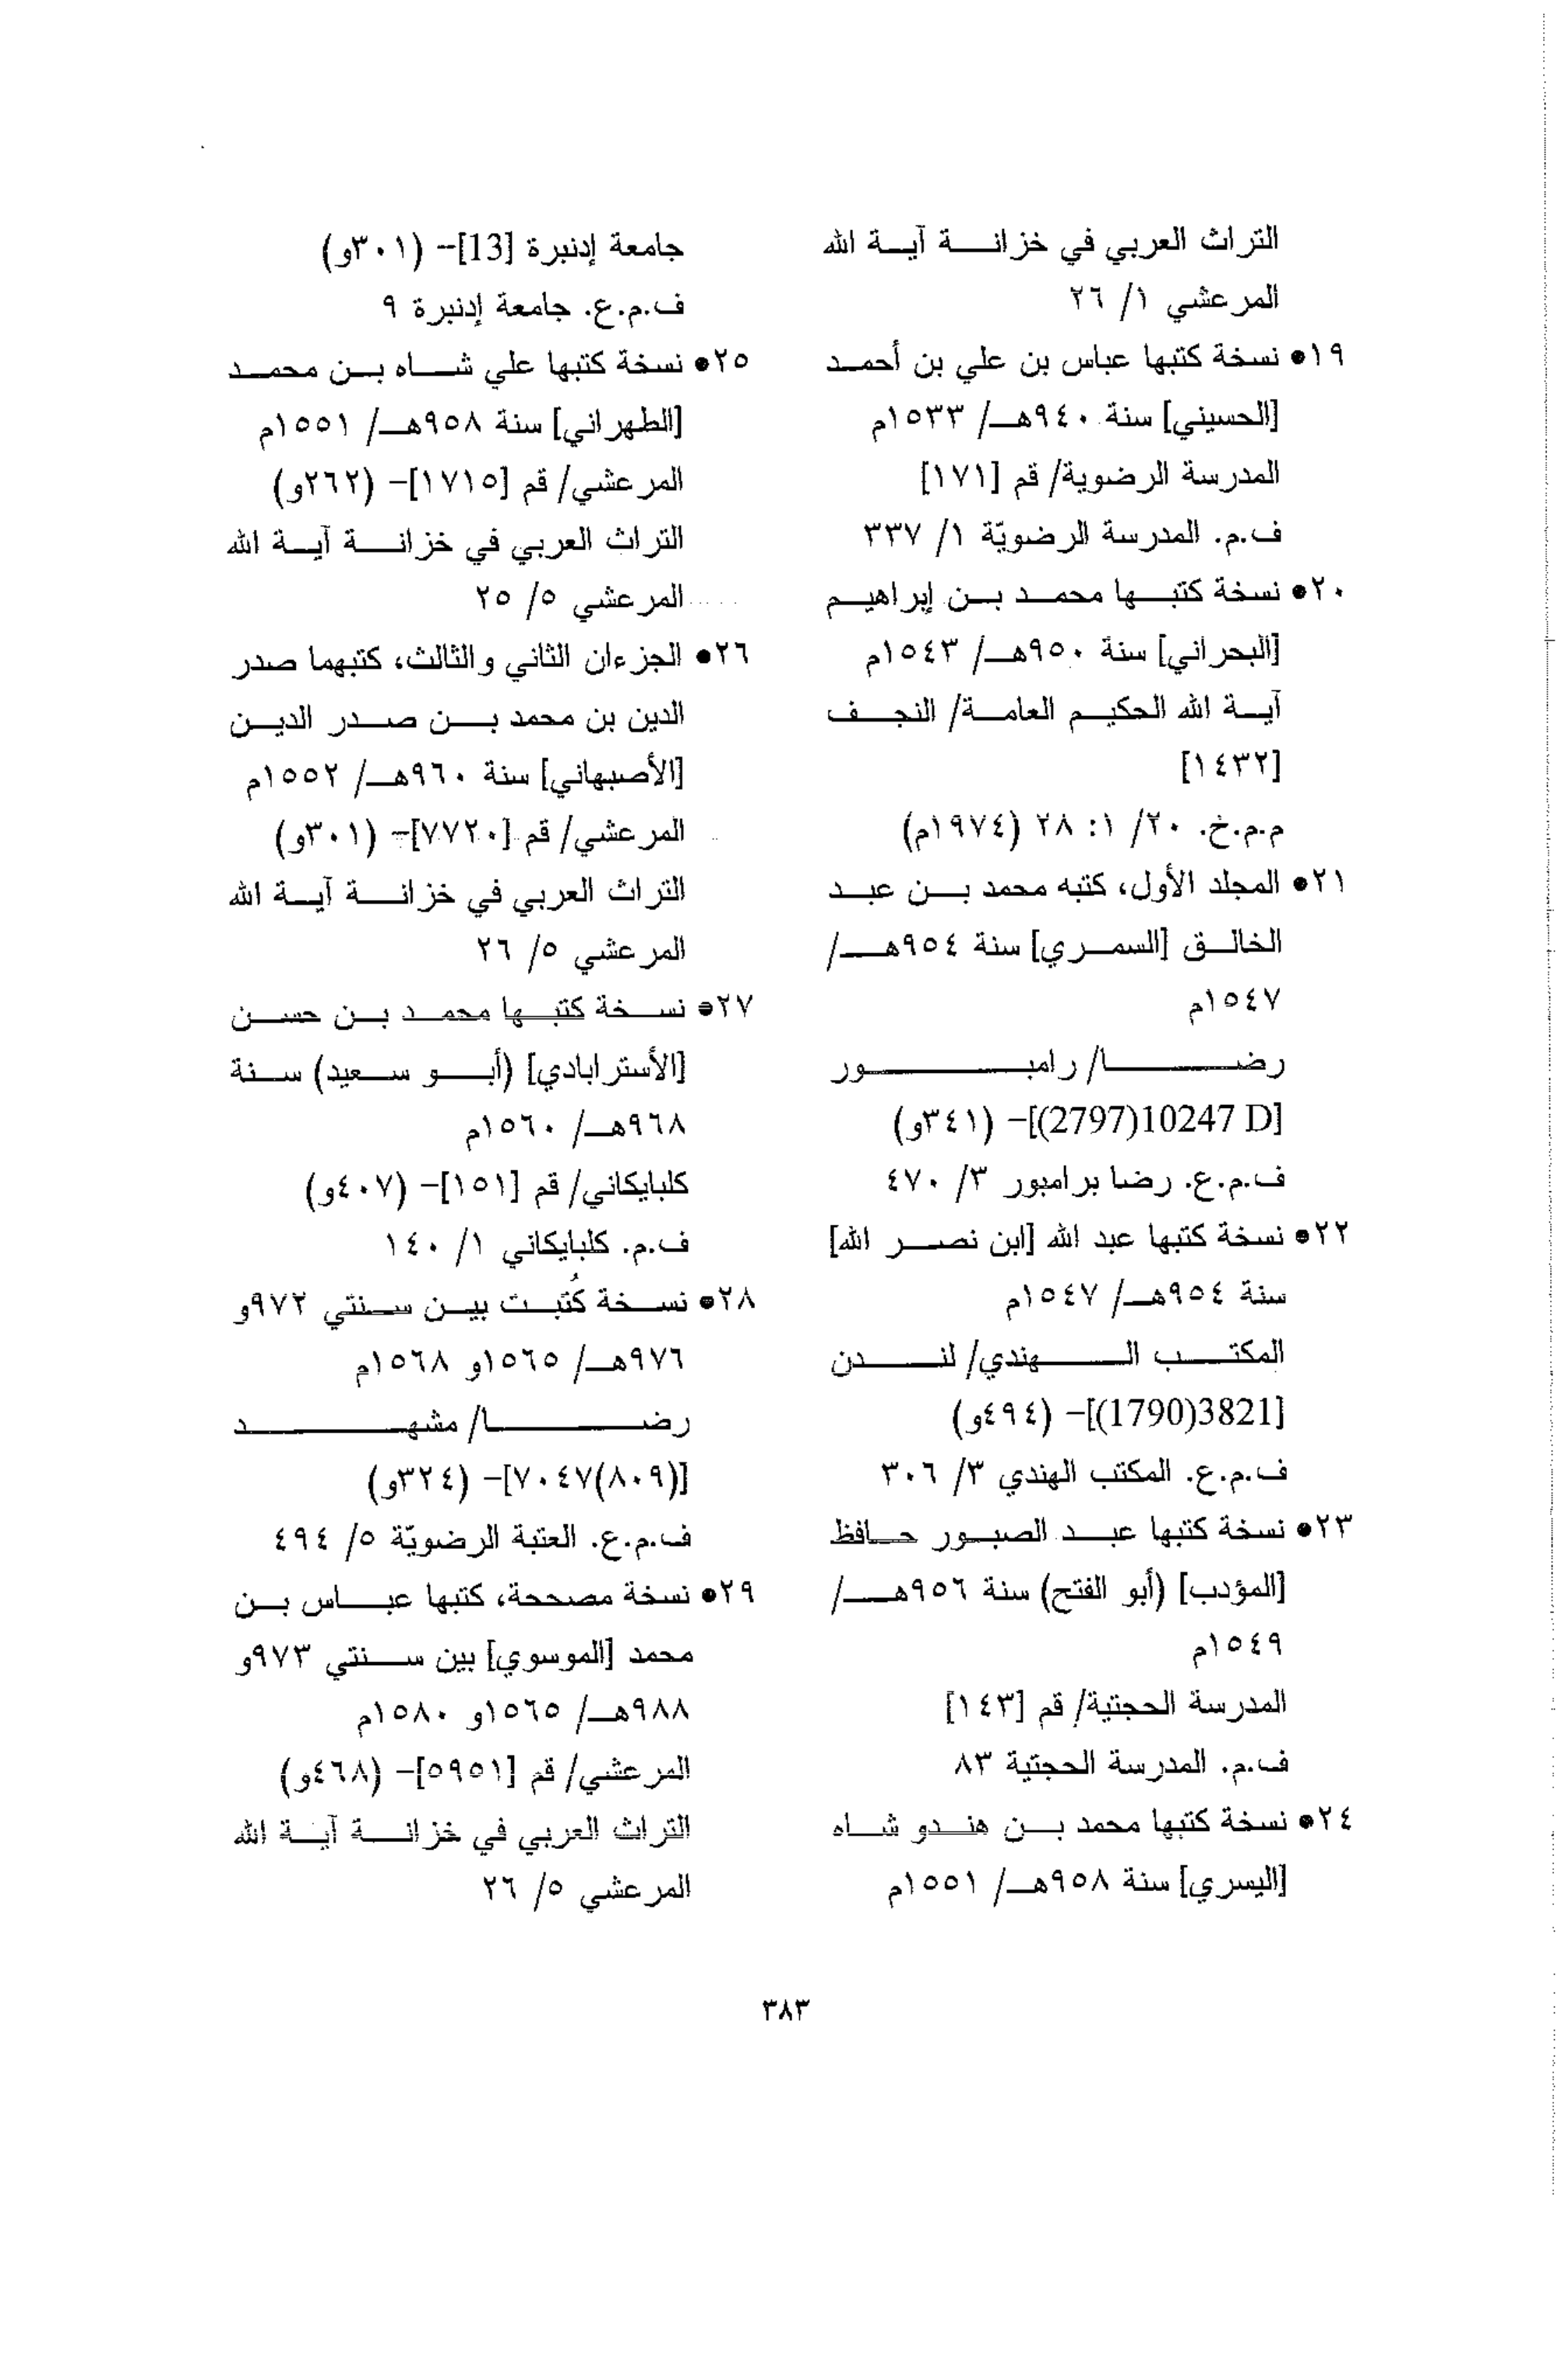 التراث العربي في خزانة آية الله
المرعشي ١/ ٢٦
١٩• نسخة كتبها عباس بن علي بن أحمد
[الحسيني] سنة ٩٤٠هـ/ ١٥٣٣م
المدرسة الرضوية/ قم [١٧١]
ف.م. المدرسة الرضويّة ١/ ٣٣٧
٢٠• نسخة كتبها محمد بن إبراهيم
[البحراني] سنة ٩٥٠هـ/ ١٥٤٣م
آية الله الحكيم العامة/ النجف
[١٤٣٢]
م.م.خ. ٢٠/ ١: ٢٨ (١٩٧٤م)
٢١• المجلد الأول، كتبه محمد بن عبد
الخالق [السمري] سنة ٩٥٤هـ/
١٥٤٧م
رضا/ رامبور
[10247 D(2797)]- (٣٤١و)
ف.م.ع. رضا برامبور ٣/ ٤٧٠
٢٢• نسخة كتبها عبد الله [ابن نصر الله]
سنة ٩٥٤هـ/ ١٥٤٧م
المكتب الهندي/ لندن
[3821(1790)]- (٤٩٤و)
ف.م.ع. المكتب الهندي ٣/ ٣٠٦
٢٣• نسخة كتبها عبد الصبور حافظ
[المؤدب] (أبو الفتح) سنة ٩٥٦هـ/
١٥٤٩م
المدرسة الحجتية/ قم [١٤٣]
ف.م. المدرسة الحجتية ٨٣
٢٤• نسخة كتبها محمد بن هندو شاه
[اليسري] سنة ٩٥٨هـ/ ١٥٥١م
جامعة إدنبرة [13]- (٣٠١و)
ف.م.ع. جامعة إدنبرة ٩
٢٥• نسخة كتبها علي شاه بن محمد
[الطهراني] سنة ٩٥٨هـ/ ١٥٥١م
المرعشي/ قم [١٧١٥]- (٢٦٢و)
التراث العربي في خزانة آية الله
المرعشي ٥/ ٢٥
٢٦• الجزءان الثاني والثالث، كتبهما صدر
الدين بن محمد بن صدر الدين
[الأصبهاني] سنة ٩٦٠هـ/ ١٥٥٢م
المرعشي/ قم [٧٧٢٠]- (٣٠١و)
التراث العربي في خزانة آية الله
المرعشي ٥/ ٢٦
٢٧• نسخة كتبها محمد بن حسن
[الأسترابادي] (أبو سعيد) سنة
٩٦٨هـ/ ١٥٦٠م
كلبايكاني/ قم [١٥١]- (٤٠٧و)
ف.م. كلبايكاني ١/ ١٤٠
٢٨• نسخة كُتبت بين سنتي ٩٧٢و
٩٧٦هـ/ ١٥٦٥و ١٥٦٨م
رضا/ مشهد
[(٨٠٩)٧٠٤٧]- (٣٢٤و)
ف.م.ع. العتبة الرضويّة ٥/ ٤٩٤
٢٩• نسخة مصححة، كتبها عباس بن
محمد [الموسوي] بين سنتي ٩٧٣و
٩٨٨هـ/ ١٥٦٥و ١٥٨٠م
المرعشي/ قم [٥٩٥١]- (٤٦٨و)
التراث العربي في خزانة آية الله
المرعشي ٥/ ٢٦
٣٨٣